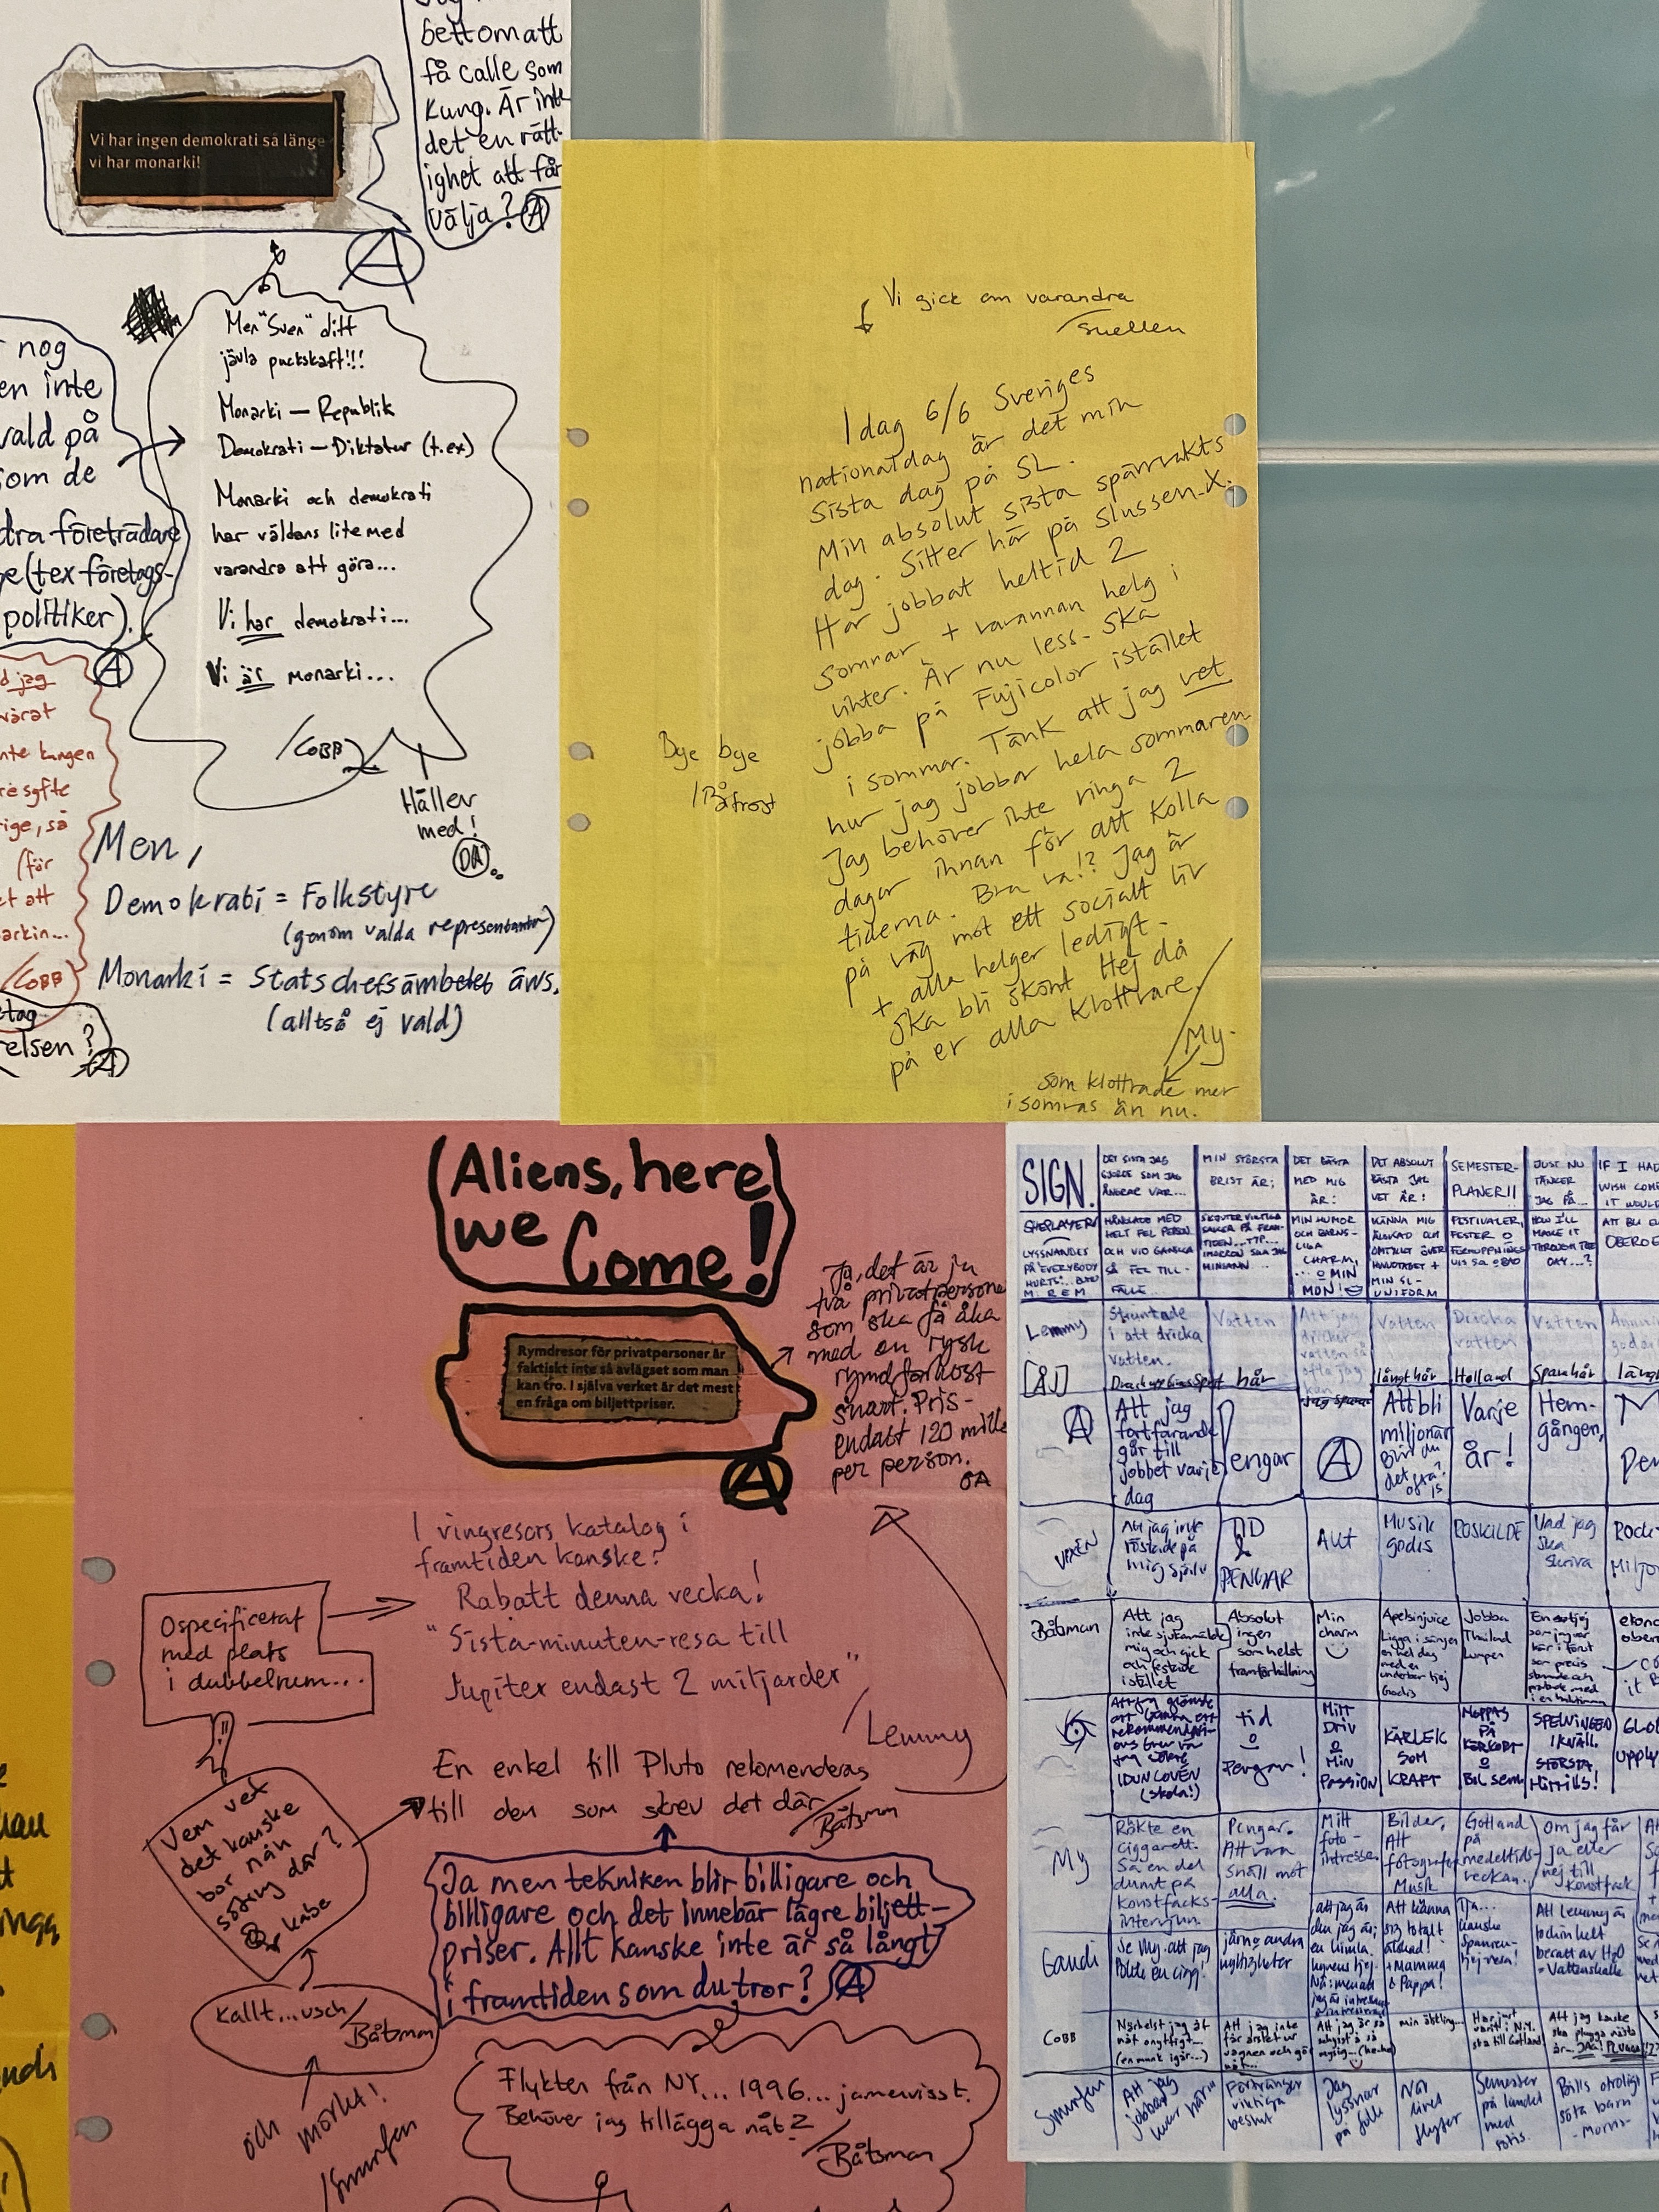 bettom att
få calle som
Kung. Är inte
det en rätt-
ighet att får
välja? Ⓐ
Vi har ingen demokrati så länge
vi har monarki!
Ⓐ
Men "Sven" ditt
jävla puckskaft!!!
Monarki – Republik
Demokrati – Diktatur (t.ex)
Monarki och demokrati
har väldans lite med
varandra att göra...
Vi har demokrati...
Vi är monarki...
/COBB
Håller
med!
ÖA
nog
en inte
vald på
som de
dra företrädare
(tex företags-
politiker).
Ⓐ
jag
värat
nte kungen
re syfte
rige, så
(för
et att
arkin...
/COBB
etag
relsen?
Ⓐ
Men,
Demokrati = Folkstyre
(genom valda representanter)
Monarki = Statschefsämbetet äws.
(alltså ej vald)
Vi gick om varandra
/Snellen
Idag 6/6 Sveriges
nationaldag är det min
sista dag på SL.
Min absolut sista spärrvakts
dag. Sitter här på Slussen-X.
Har jobbat heltid 2
somrar + varannan helg i
vinter. Är nu less. Ska
jobba på Fujicolor istället
i sommar. Tänk att jag vet
hur jag jobbar hela sommaren
Jag behöver inte ringa 2
dagar innan för att kolla
tiderna. Bra va!? Jag är
på väg mot ett socialt liv
+ alla helger ledigt.
Ska bli skönt Hej då
på er alla klottrare.
/My.
som klottrade mer
i somras än nu.
Bye bye
Aliens, here
we Come!
Rymdresor för privatpersoner är
faktiskt inte så avlägset som man
kan tro. I själva verket är det mest
en fråga om biljettpriser.
Ⓐ
Ja, det är ju
två privatpersone
som ska få åka
med en rysk
rymdfarkost
snart. Pris-
endast 120 mille
per person.
ÖA
I vingresors katalog i
framtiden kanske?
Rabatt denna vecka!
"Sista-minuten-resa till
Jupiter endast 2 miljarder"
/Lemmy
Ospecificerat
med plats
i dubbelrum...
En enkel till Pluto rekomenderas
till den som skrev det där
/Båtsman
Vem vet
det kanske
bor nån
söting där?
kabe
Kallt...usch
/Båtsman
och mörkt!
/Smurfen
Ja men tekniken blir billigare och
billigare och det innebär lägre biljett-
priser. Allt kanske inte är så långt
i framtiden som du tror? Ⓐ
Flykten från NY... 1996... jamenvisst.
Behöver jag tillägga nåt?
/Båtsman
SIGN.
DET SISTA JAG
GJORDE SOM JAG
ÅNGRAR VAR...
MIN STÖRSTA
BRIST ÄR:
DET BÄSTA
MED MIG
ÄR:
DET ABSOLUT
BÄSTA JAG
VET ÄR:
SEMESTER-
PLANER!!
JUST NU
TÄNKER
JAG PÅ...
IF I HAD
WISH COME
IT WOULD
LYSSNANDES
PÅ "EVERYBODY
HURTS"
R.E.M
HELT FEL PERSON
OCH VID GANSKA
SÅ FEL TILL-
FÄLLE.
MIN HUMOR
OCH BARNS-
LIGA
CHARM,
...O MIN
MUN!
KÄNNA MIG
ÄLSKAD OCH
OMTYCKT ÖVER
HUVUDTAGET +
MIN SL-
UNIFORM
FESTIVALER,
FESTER O
HOW I'LL
MAKE IT
THROUGH THE
DAY...?
ATT BLI
OBEROE
Lemmy
Struntade
i att dricka
vatten.
Vatten
Att jag
dricker
vatten så
ofta jag
kan
Vatten
Dricka
vatten
Vatten
[ÅJ]
hår
långt hår
Holland
Spanhår
Ⓐ
Att jag
fortfarande
går till
jobbet varje
dag
Pengar
Ⓐ
Att bli
miljonär
Blir du
det ofta?
Varje
år!
Hem-
gången,
VIXEN
Att jag inte
röstade på
mig själv
TID
&
PENGAR
Allt
Musik
godis
ROSKILDE
Vad jag
ska
skriva
Båtsman
Att jag
inte sjukanmälde
mig och gick
och festade
istället
Absolut
ingen
som helst
framförhållning
Min
charm
Apelsinjuice
Ligga i sängen
en hel dag
med en
underbar tjej
Godis
Jobba
Thailand
Lumpen
tid
o
Pengar!
Mitt
Driv
o
Min
Passion
KÄRLEK
SOM
KRAFT
HOPPAS
PÅ
KÖRKORT
o
Bil sem
SPELNINGEN
IKVÄLL
STÖRSTA
HITTILLS!
My
Rökte en
ciggarett.
Så en del
dumt på
Konstfacks-
intervjun.
Pengar.
Att vara
snäll mot
alla.
Mitt
foto-
intresse
Bilder,
Att
fotografera
Musik
Gotland
på
medeltids-
veckan.
Om jag får
ja eller
nej till
Konstfack
Gaudi
Se My. att jag
Rökte en cigg!
Att känna
sig totalt
älskad!
+ Mamma
& Pappa!
Tja...
kanske
Spanien-
tjejresa!
Att Lemmy är
totalt
berått av H₂O
= Vattenskalle
COBB
Närhelst jag åt
nåt onyttigt...
(en munk igår...)
Att jag inte
får arslet ur
vagnen och gör
nåt...
min älskling...
Har just
varit i N.Y.
ska till Gotland
Att jag kanske
ska plugga nästa
år...
Smurfen
Att jag
jobbar
"över här"
Förtränger
viktiga
beslut
Jag
lyssnar
på folk
När
livet
flyter
Semester
på landet
med
Bills otroligt
söta barn